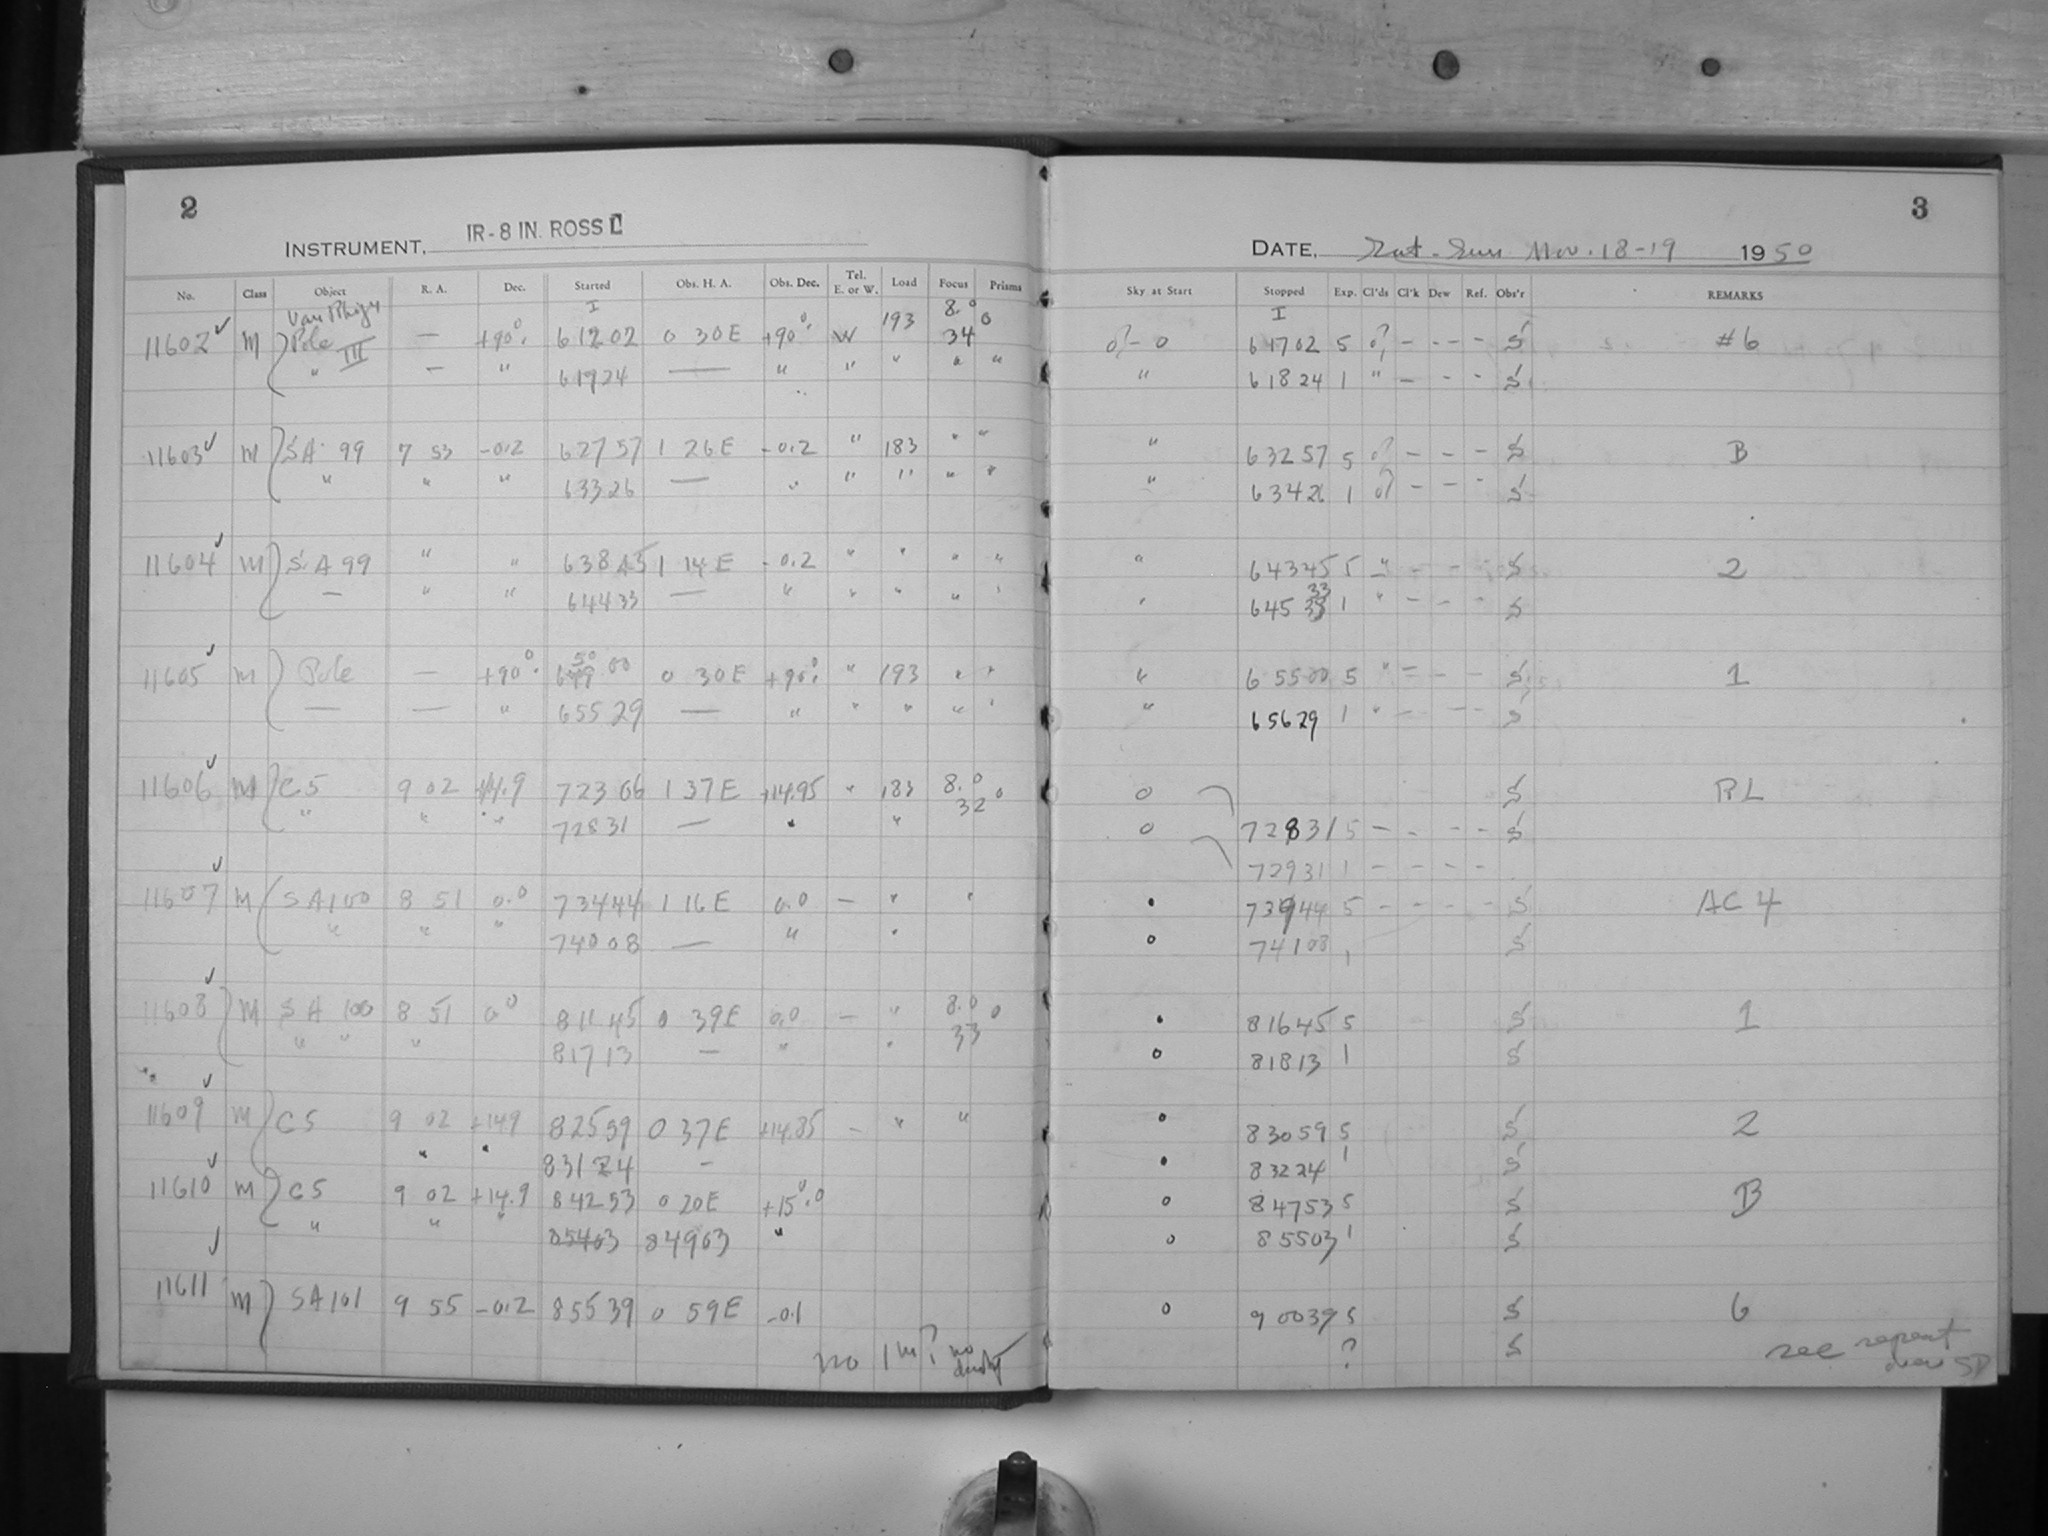 2
INSTRUMENT, IR-8 IN. ROSS L
No. Class Object R. A. Dec. Started Obs. H. A. Obs. Dec. Tel. E. or W. Load Focus Prisms
11602 M Pole III — +90° 61202 0 30E +90° W 193 8.0 34 0
" — " 61924 — " " " " "
11603 M SA 99 7 53 -0.2 62757 1 26E -0.2 " 183 " "
" " " 63326 — " " " " "
11604 M SA 99 " " 63845 1 14E -0.2 " " " "
— " " 64433 — " " " " "
11605 M Pole — +90° 65000 0 30E +90° " 193 " "
— — " 65529 — " " " " "
11606 M C5 9 02 +14.9 72306 1 37E +14.95 " 183 8.0 32 0
" " " 72831 — " "
11607 M SA100 8 51 0.0 73444 1 16E 0.0 — " "
" " " 74008 — " "
11608 M SA 100 8 51 0.0 81145 0 39E 0.0 — " 8.0 33 0
" " " 81713 — " "
11609 M C5 9 02 +14.9 82559 0 37E +14.85 — " "
" " 83124 —
11610 M C5 9 02 +14.9 84253 0 20E +15.0
" " " 85403 84903 "
11611 M SA101 9 55 -0.2 85539 0 59E -0.1
no 1m? no
3
DATE, Sat-Sun Nov. 18-19 1950
Sky at Start Stopped Exp. Cl'ds Cl'k Dew Ref. Obs'r REMARKS
61702 5 — - - - S #6
" 61824 1 " — - - S
" 63257 5 — — — S B
" 63426 1 — — - S
" 64345 5 " - - - S 2
" 64533 1 " - - - S
" 65500 5 " = - - S 1
" 65629 1 " - - - S
0 S RL
0 72831 5 — - - - S
72931 1 - - - -
73944 5 - - - - S AC 4
74108 1 S
81645 5 S 1
81813 1 S
83059 5 S 2
83224 1 S
0 84753 5 S B
0 85503 1 S
0 90039 5 S 6
? S see repeat